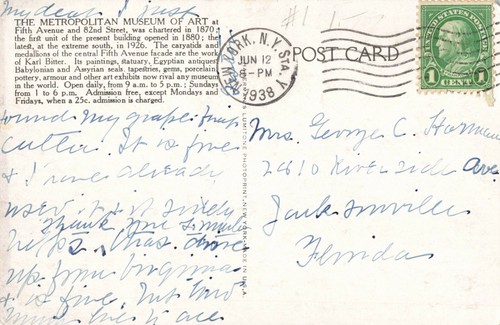 My dear, I just
THE METROPOLITAN MUSEUM OF ART at
Fifth Avenue and 82nd Street, was chartered in 1870;
the first unit of the present building opened in 1880; the
latest, at the extreme south, in 1926. The caryatids and
medallions of the central Fifth Avenue facade are the work
of Karl Bitter. Its paintings, statuary, Egyptian antiques,
Babylonian and Assyrian seals, tapestries, gems, porcelain,
pottery, armour and other art exhibits now rival any museum
in the world. Open daily, from 9 a.m. to 5 p.m.; Sunday
from 1 to 6 p.m. Admission free, except Mondays and
Fridays, when a 25c. admission is charged.
found my grape fruit
cutter. It is fine
& I have already
used it & it surely
helps. Thank you so much
Chas. drove
up from Virginia
& is fine, but
#1
NEW YORK, N.Y. STA. Y
JUN 12
8-PM
1938
POST CARD
1 CENT 1
LUMITONE PHOTOPRINT, NEW YORK-MADE IN U.S.A.
Mrs. George C. Harman
2610 River side Ave
Jacksonville
Florida